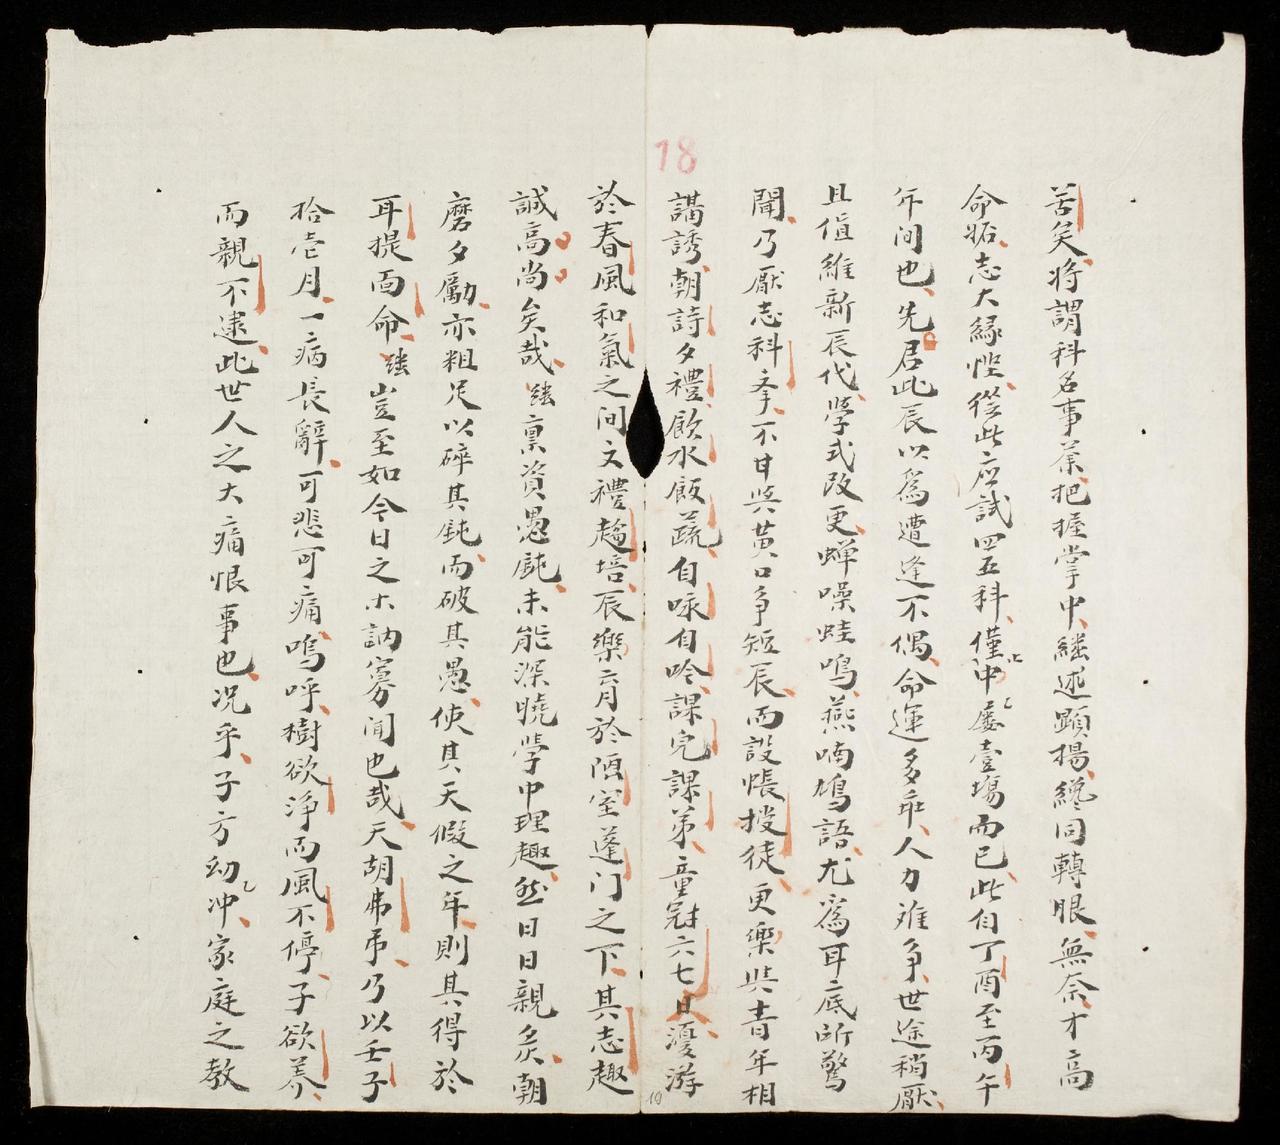 18
苦矣將謂科名事業把握掌中繼述顯揚纔同轉眼無奈才高
命妬志大緣慳從此应試四五科僅中止屡壹塲而已此自丁酉至丙午
年间也先居此辰以爲遭逢不偶命運多乖人力难争世途稍厭
且值維新辰代斈式改更蝉噪蛙鳴燕喃鳩語尤爲耳底所驚
聞乃厭志科挙不甘與黃口争短辰而設帳授徒更樂與青年相
講誘朝詩夕禮飲水飯蔬自咏自吟課児課弟童冠六七日優游
於春風和氣之间文禮趨培辰樂育於陋室蓬门之下其志趣
誠高尚矣哉 禀資愚鈍未能深曉斈中理趣然日日親炙朝
磨夕勵亦粗足以碎其鈍而破其愚使其天假之年則其得於
耳提面命 豈至如今日之木訥寡闻也哉天胡弗吊乃以壬子
拾壱月一病長辭可悲可痛嗚呼樹欲浄而風不停子欲养
而親不逮此世人之大痛恨事也况乎子方幼冲家庭之教
19